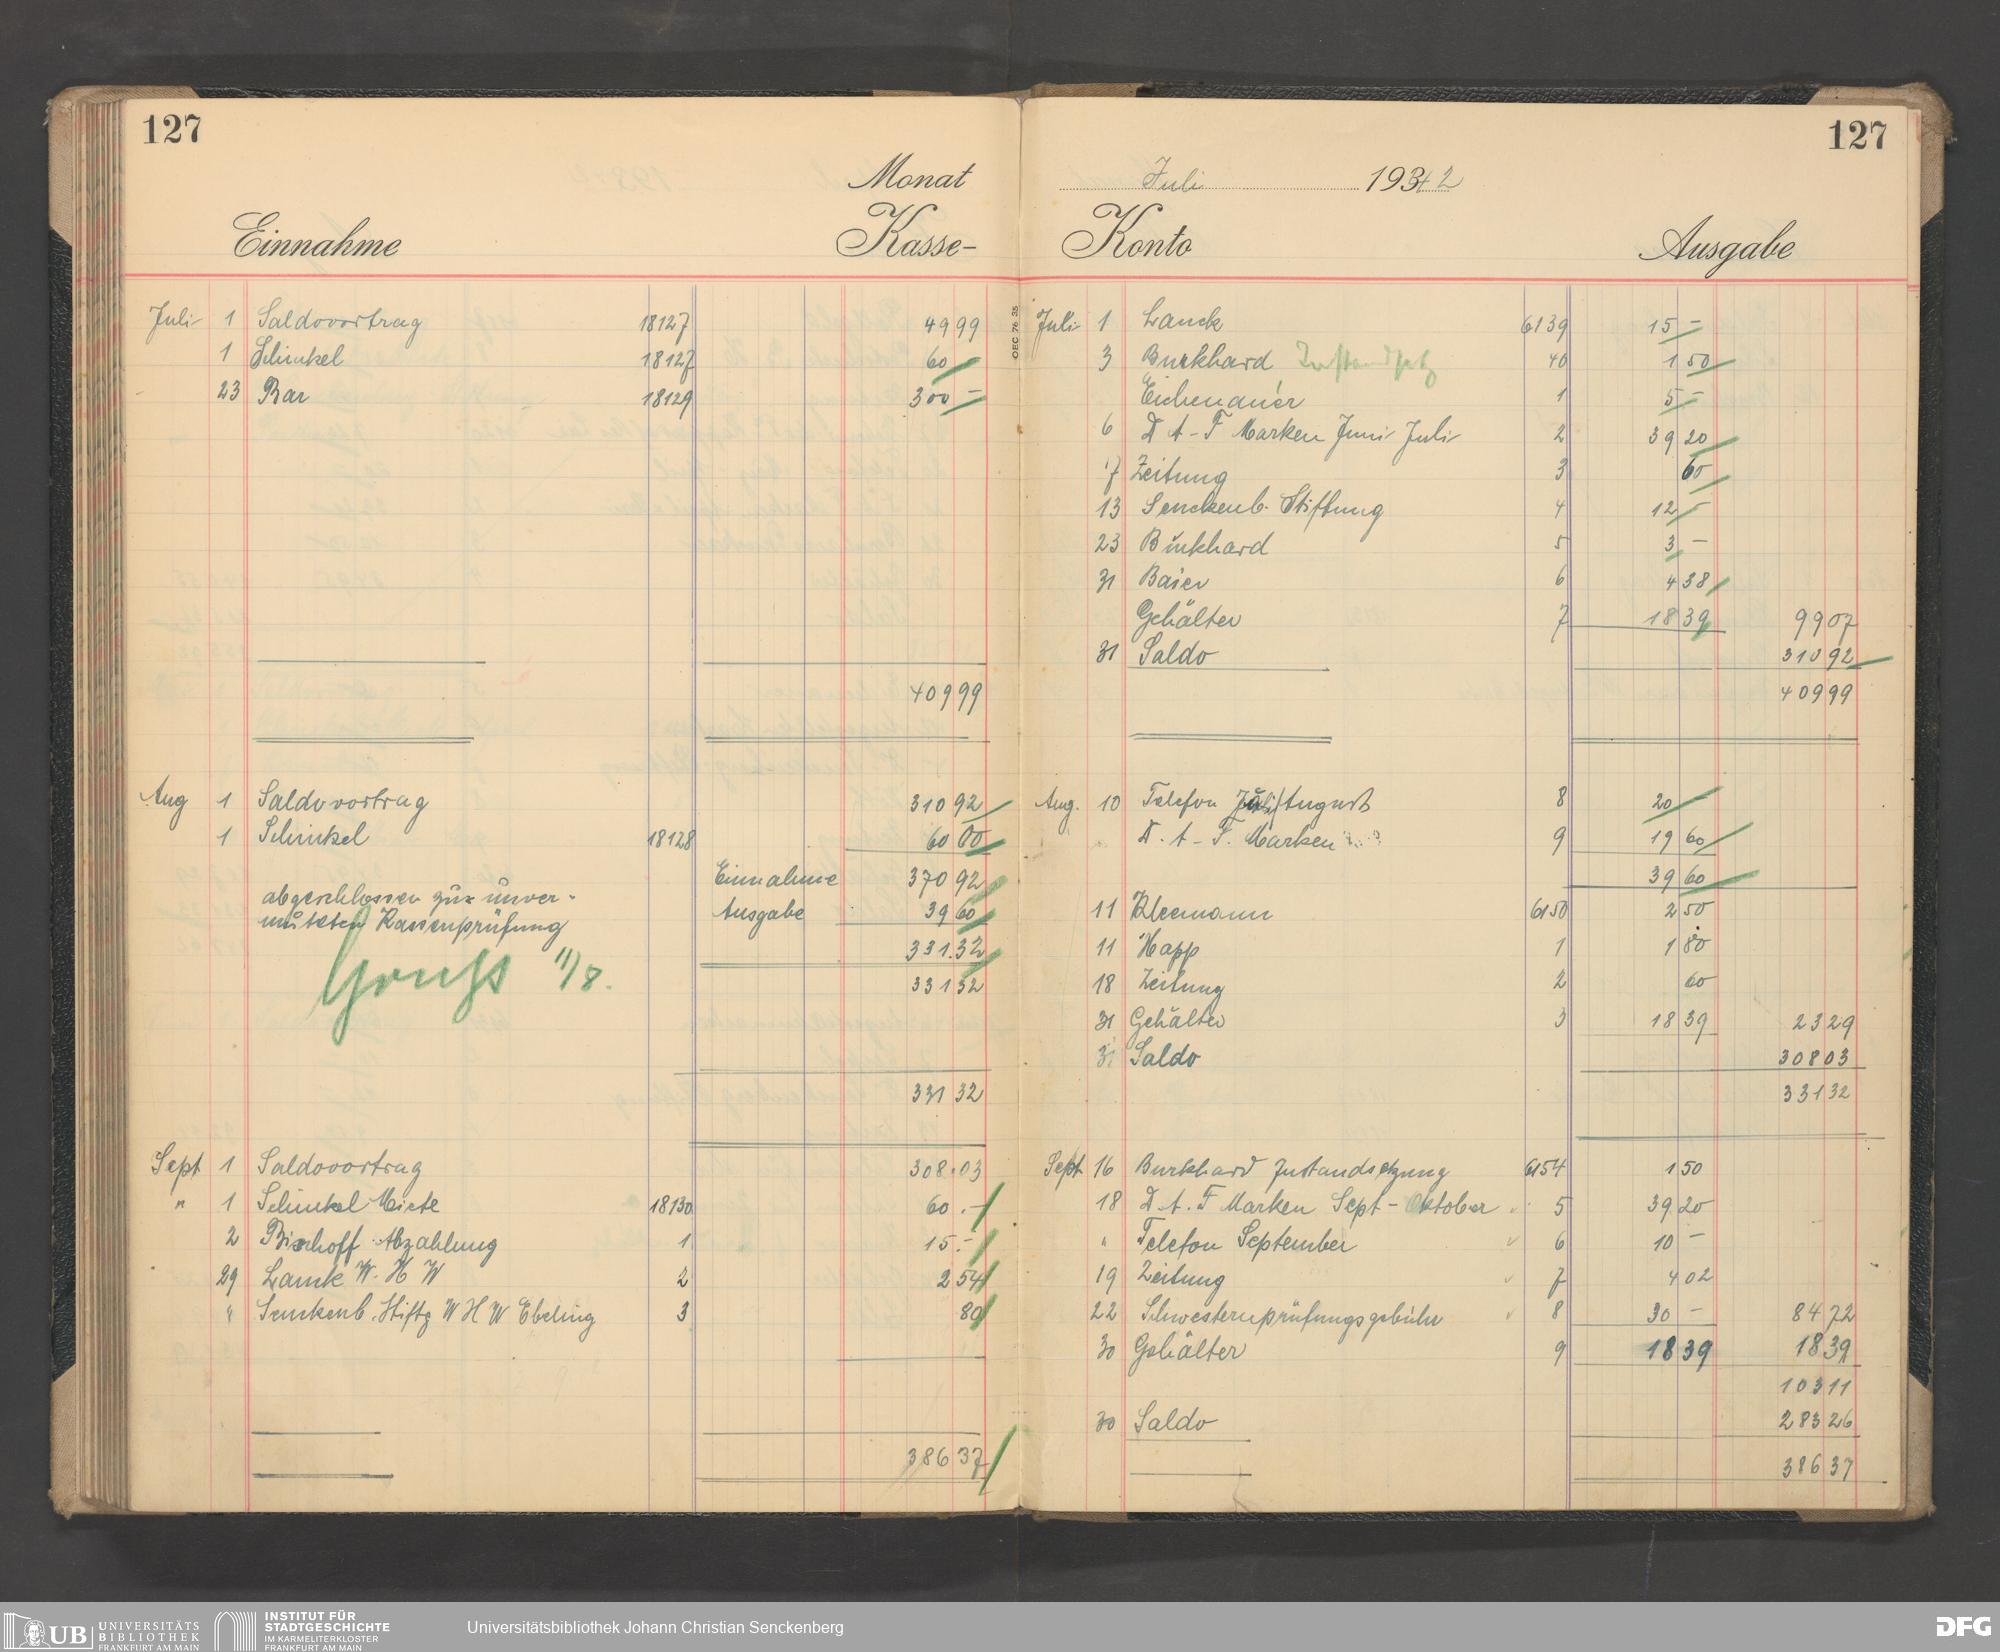 127
Monat
Einnahme Kasse-
Juli 1 Saldovortrag 18127 49 99
1 Schinkel 18127 60
23 Bar 18129 300 –
409 99
Aug 1 Saldovortrag 310 92
1 Schinkel 18128 60 00
Einnahme 370 92
abgeschlossen zur unver-
Ausgabe 39 60
muteten Kassenprüfung
331.32
11/8.
331 32
331 32
Sept 1 Saldovortrag 308.03
" 1 Schinkel Miete 18130 60.–
2 Bischoff Abzahlung 1 15.–
29 Lanck W. H W 2 2 54
" Senckenb. Stiftg W H W Ebeling 3 80
386 37
127
Juli 1942
Konto Ausgabe
OEC 76 35
Juli 1 Lanck 6139 15 –
3 Burkhard 40 1 50
Eichenauer 1 5 –
6 D A-F Marken Juni Juli 2 39 20
17 Zeitung 3 60
13 Senckenb. Stiftung 4 12 –
23 Burkhard 5 3 –
31 Baier 6 4 38
Gehälter 7 18 39 99 07
31 Saldo 310 92
409 99
Aug. 10 Telefon Juli/August 8 20 –
D. A-F. Marken 9 19 60
39 60
11 Kleemann 6150 2 50
11 Happ 1 1 80
18 Zeitung 2 60
31 Gehälter 3 18 39 23 29
31 Saldo 308 03
331 32
Sept 16 Burkhard Instandsetzung 6154 1 50
18 D. A. F Marken Sept - Oktober 5 39 20
" Telefon September 6 10 –
19 Zeitung 7 4 02
22 Schwesternprüfungsgebühr 8 30 – 84 72
30 Gehälter 9 18 39 18 39
103 11
30 Saldo 283 26
386 37
UB UNIVERSITÄTS
BIBLIOTHEK
FRANKFURT AM MAIN
INSTITUT FÜR
STADTGESCHICHTE
IM KARMELITERKLOSTER
FRANKFURT AM MAIN
Universitätsbibliothek Johann Christian Senckenberg
DFG